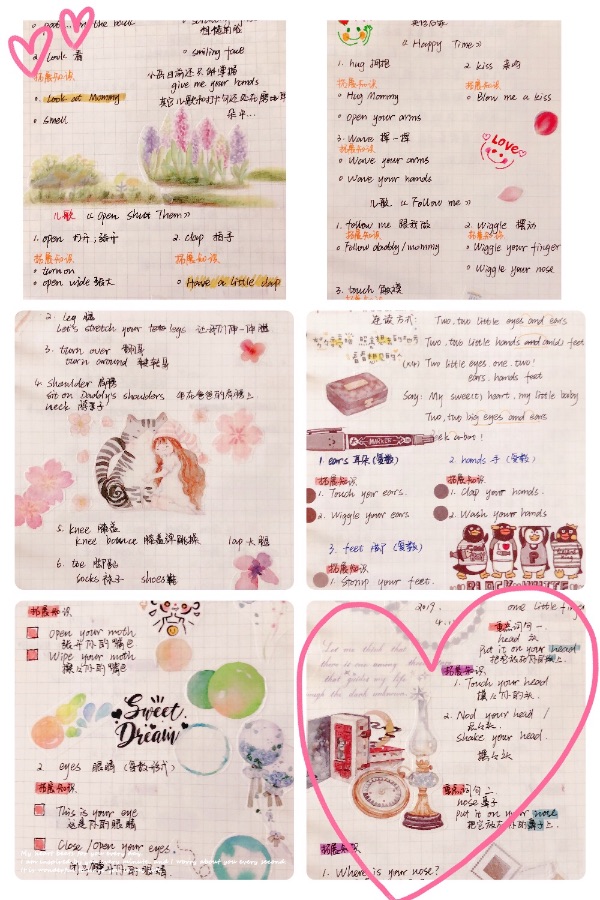 2. Look 看
smiling face
拓展知识
Look at Mommy
give me your hands
Smell
儿歌 《Open Shut Them》
1. open 打开；张开
2. clap 拍手
拓展知识
拓展知识
turn on
open wide 张大
Have a little clap
《Happy Time》
1. hug 拥抱
2. kiss 亲吻
拓展知识
拓展知识
Hug Mommy
Blow me a kiss
Open your arms
3. Wave 挥一挥
拓展知识
LOVE
Wave your arms
Wave your hands
儿歌 《Follow me》
1. follow me 跟我做
2. Wiggle 摆动
拓展知识
拓展知识
Follow daddy/mommy
Wiggle your finger
Wiggle your nose
3. touch 触摸
2. leg 腿
Let's stretch your legs
3. turn over 翻身
turn around
4. shoulder 肩膀
sit on Daddy's shoulders 坐在爸爸的肩膀上
neck
5. knee 膝盖
knee bounce
lap 大腿
6. toe
socks 袜子 shoes 鞋
Two, two little eyes and ears
Two, two little hands and feet
Two little eyes, one, two!
ears, hands feet
Say: My sweety heart, my little baby
Two, two big eyes and ears
MARKER
1. ears 耳朵 (复数)
2. hands 手 (复数)
拓展知识
拓展知识
1. Touch your ears.
1. Clap your hands.
2. Wiggle your ears
2. Wash your hands
3. feet 脚 (复数)
拓展知识
1. Stomp your feet.
拓展知识
Open your moth
张开你的嘴巴
Wipe your moth
擦擦你的嘴巴
Sweet
Dream
2. eyes 眼睛 (复数形式)
拓展知识
This is your eye
这是你的眼睛
Close/Open your eyes
2019.
one little finger
重点词句一
head 头
put it on your head
把它放在你的头上.
拓展知识
1. Touch your head
摸摸你的头.
2. Nod your head /
点点头.
shake your head.
摇头
重点词句二
nose 鼻子
put it on your nose
把它放在你的鼻子上.
拓展知识
1. Where is your nose?